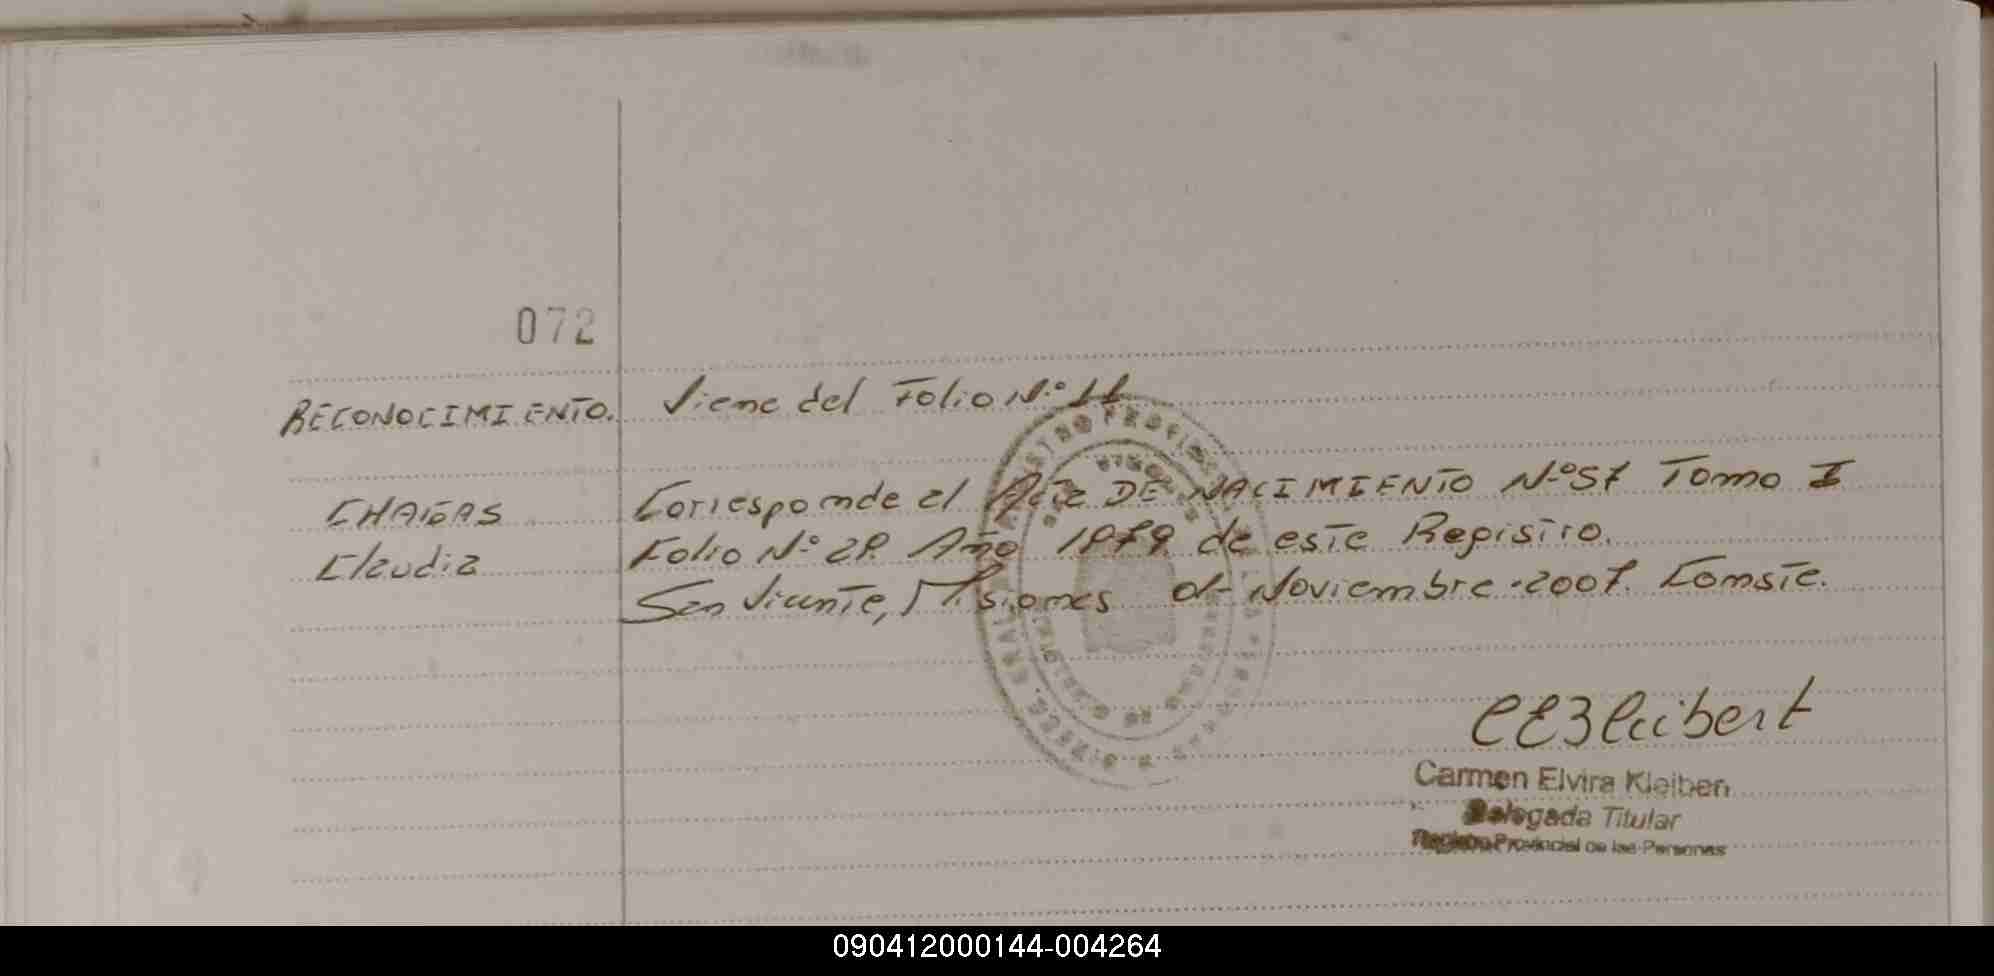 072
RECONOCIMIENTO. Viene del Folio N° 11
CHAGAS Corresponde el Acta DE NACIMIENTO N°57 Tomo I
Claudia Folio N° 28. Año 1979 de este Registro.
San Vicente, Misiones 01- Noviembre-2007. Conste.
Carmen Elvira Kleibert
Delegada Titular
Registro Provincial de las Personas
090412000144-004264